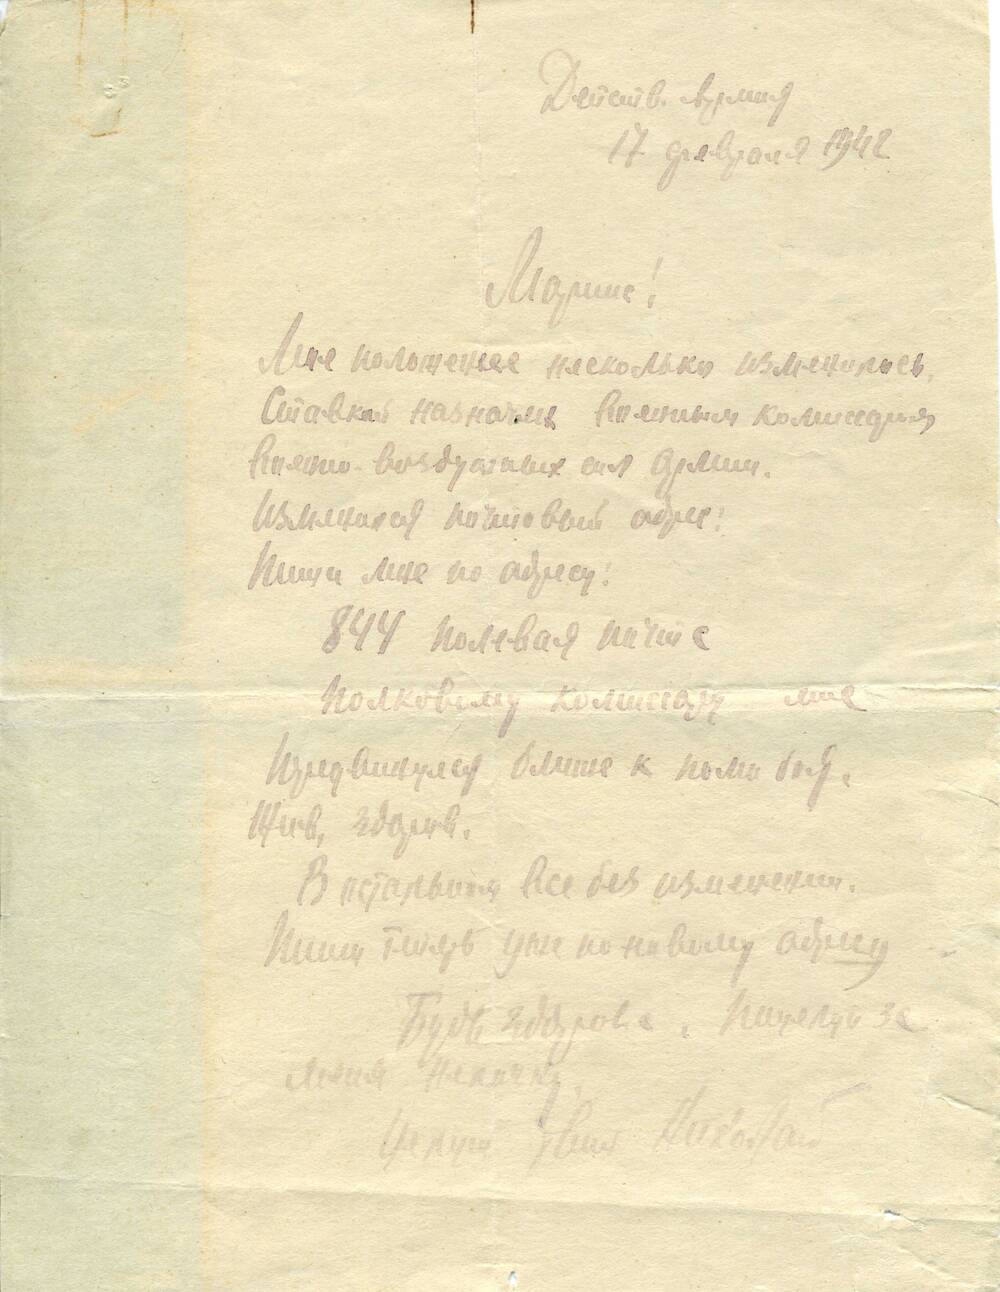 Действ. Армия
17 февраля 1942
Марине!
Мое положение несколько изменилось.
Ставкой назначен Военным комиссаром
Военно-воздушных сил Армии.
Изменился почтовый адрес:
Пиши мне по адресу:
844 полевая почта
Полковому комиссару мне
Придвинулся ближе к полю боя.
Жив, здоров.
В остальном все без изменений.
Пиши теперь уже по новому адресу
Будь здорова. Поцелуй за
меня
Целую Твой Николай